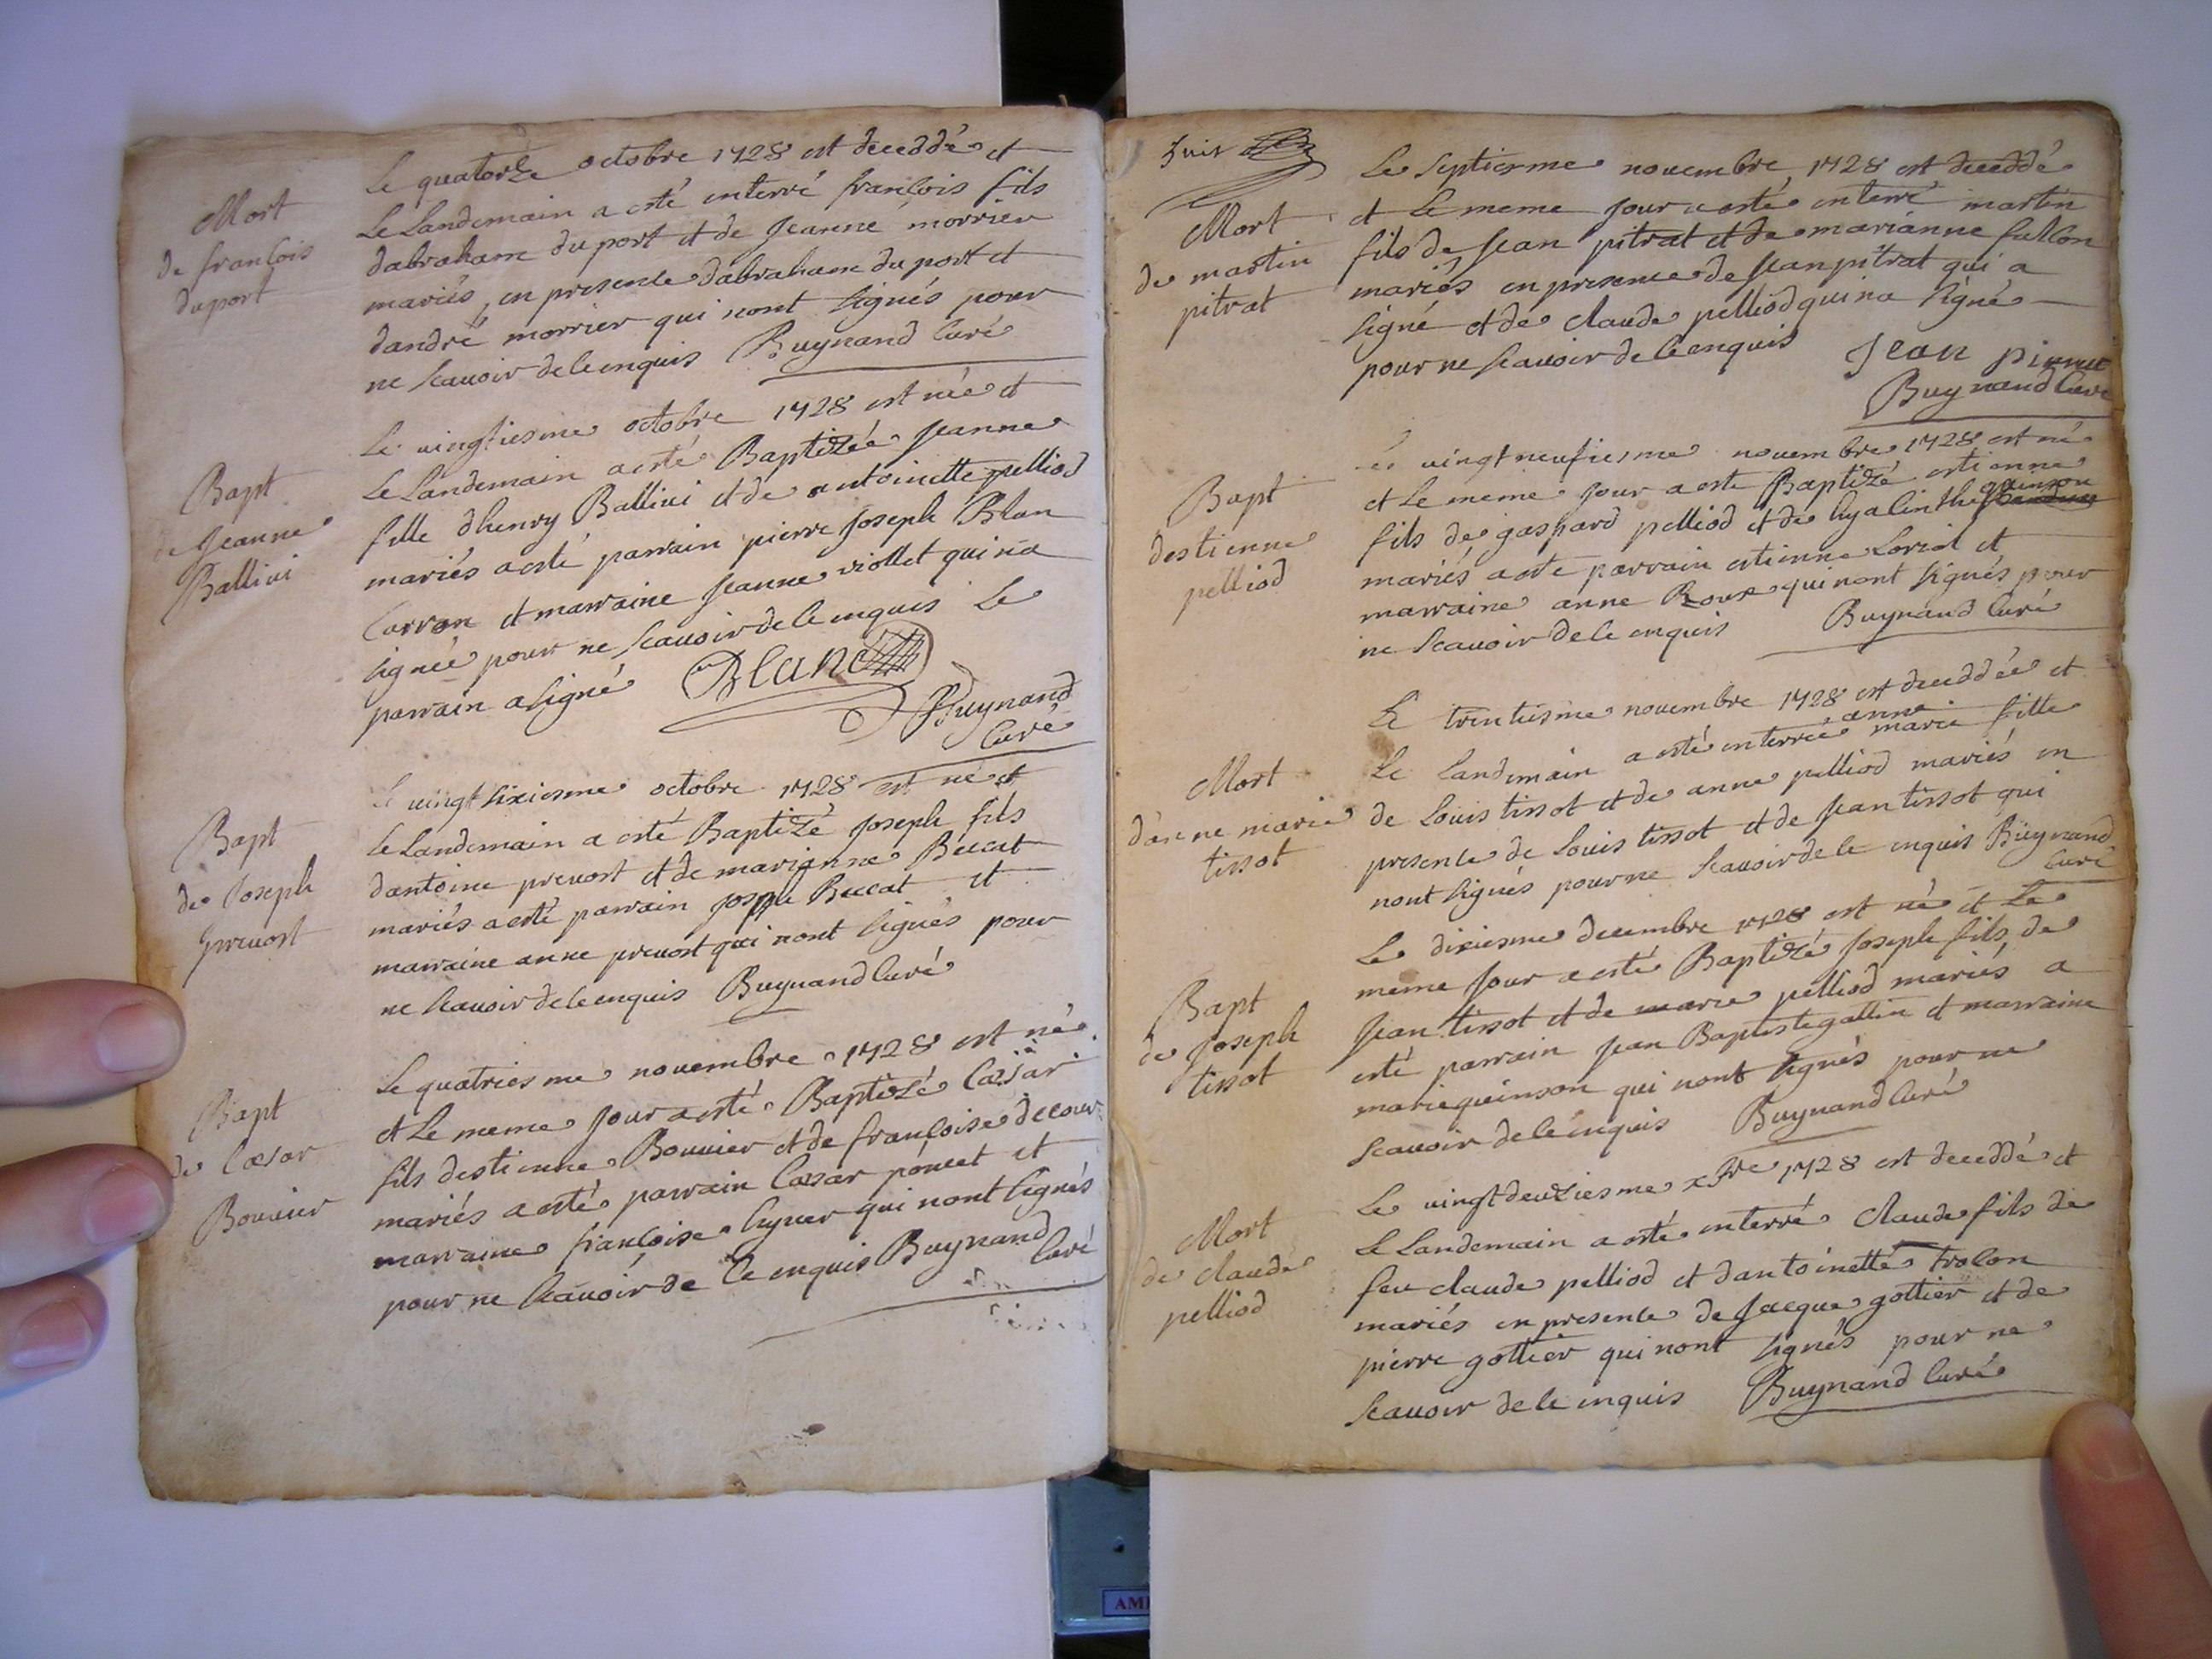 Mort
de francois
duport
Le quatorze octobre 1728 est deceddé et
Le Landemain a esté enterré francois fils
dabraham du port et de Jeanne morrier
mariés, en presence dabraham du port et
dandré morrier qui nont signés pour
ne scauoir de ce enquis Buynand Curé
Bapt
de Jeanne
Ballini
Le uingtiesme octobre 1728 est née et
Le Landemain a esté Baptizée Jeanne
fille dhenry Ballini et de antoinette pelliod
mariés a esté parrain pierre Joseph Blan
Carron et marraine Jeanne viollet qui na
signée pour ne scauoir de ce enquis Le
parrain a signé Blanc
Buynand
Curé
Bapt
de Joseph
preuost
Le uingt sixiesme octobre 1728 est né et
Le Landemain a esté Baptizé Joseph fils
dantoine preuost et de marianne Beccat
mariés a esté parrain Joseph Beccat et
marraine anne preuost qui nont signés pour
ne scauoir de ce enquis Buynand Curé
Bapt
de Cæsar
Bouuier
Le quatriesme nouembre 1728 est né
et Le meme Jour a esté Baptizé Cæsar
fils destienne Bouuier et de francoise decour
mariés a esté parrain Cæsar poncet et
marraine francoise hyuer qui nont signés
pour ne scauoir de ce enquis Buynand
Curé
Mort
de martin
pitrat
Le septiesme nouembre 1728 est deceddé
et Le meme Jour a esté enterré martin
fils de Jean pitrat et de marianne fallon
mariés en presence de Jean pitrat qui a
signé et de claude pelliod qui na signé
pour ne scauoir de ce enquis Jean
Buynand Curé
Bapt
destienne
pelliod
Le uingt neufiesme nouembre 1728 est né
et Le meme Jour a esté Baptizé estienne
quinson
fils de gaspard pelliod et de hyacinthe
mariés a esté parrain estienne Loriot et
marraine anne Roux qui nont signés pour
ne scauoir de ce enquis Buynand Curé
Mort
danne marie
tissot
Le trentiesme nouembre 1728 est deceddée et
anne
Le landemain a esté enterrée marie fille
de Louis tissot et de anne pelliod mariés en
presence de Louis tissot et de Jean tissot qui
nont signés pour ne scauoir de ce enquis Buynand
Curé
Bapt
de Joseph
tissot
Le dixiesme decembre 1728 est né et Le
meme Jour a esté Baptizé Joseph fils de
Jean tissot et de marie pelliod mariés a
esté parrain Jean Baptiste gattin et marraine
marie quinson qui nont signés pour ne
scauoir de ce enquis Buynand Curé
Mort
de claude
pelliod
Le uingt deuziesme xbre 1728 est deceddé et
Le Landemain a esté enterré claude fils de
feu claude pelliod et dantoinette trolon
mariés en presence de Jacque gottier et de
pierre gottier qui nont signés pour ne
scauoir de ce enquis Buynand Curé